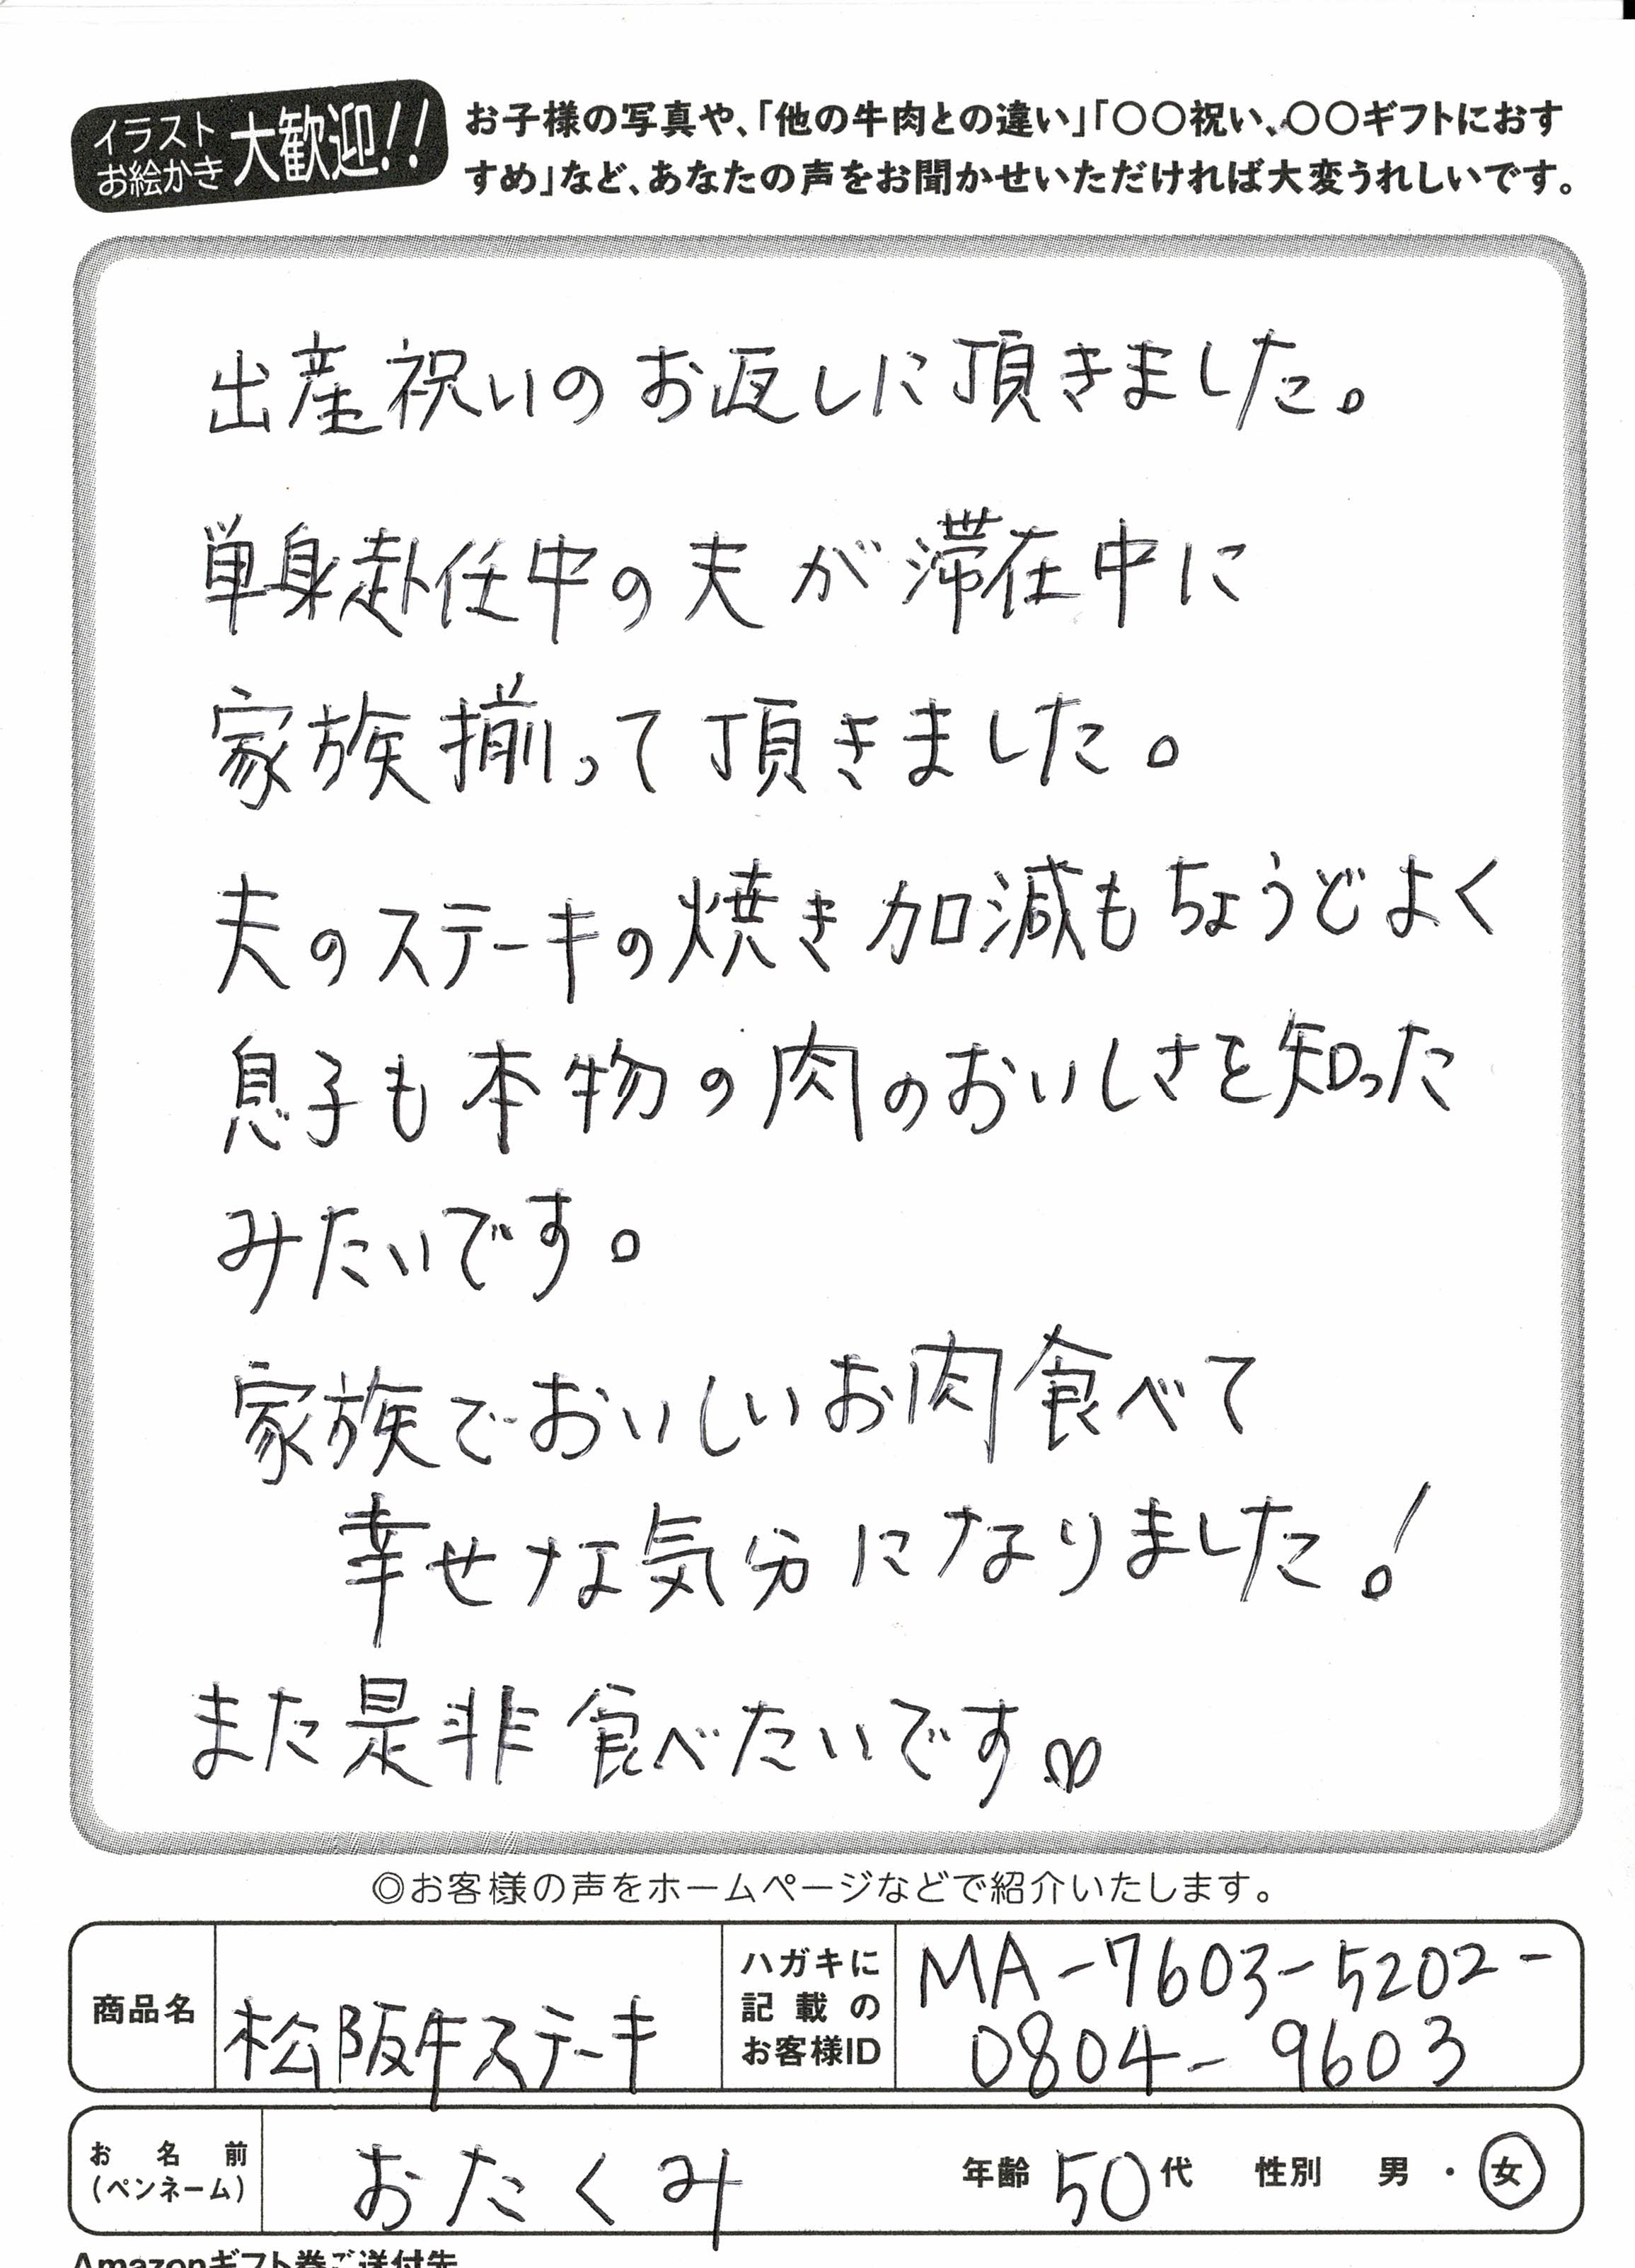 イラスト
お絵かき
大歓迎!!
お子様の写真や、「他の牛肉との違い」「〇〇祝い、〇〇ギフトにおす
すめ」など、あなたの声をお聞かせいただければ大変うれしいです。
出産祝いのお返しに頂きました。
単身赴任中の夫が滞在中に
家族揃って頂きました。
夫のステーキの焼き加減もちょうどよく
息子も本物の肉のおいしさを知った
みたいです。
家族でおいしいお肉食べて
幸せな気分になりました!
また是非食べたいです♡
◎お客様の声をホームページなどで紹介いたします。
商品名
松阪牛ステーキ
ハガキに
記載の
お客様ID
MA-7603-5202-
0804-9603
お名前
(ペンネーム)
おたくみ
年齢 50代 性別 男・女
Amazonギフト券ご送付先